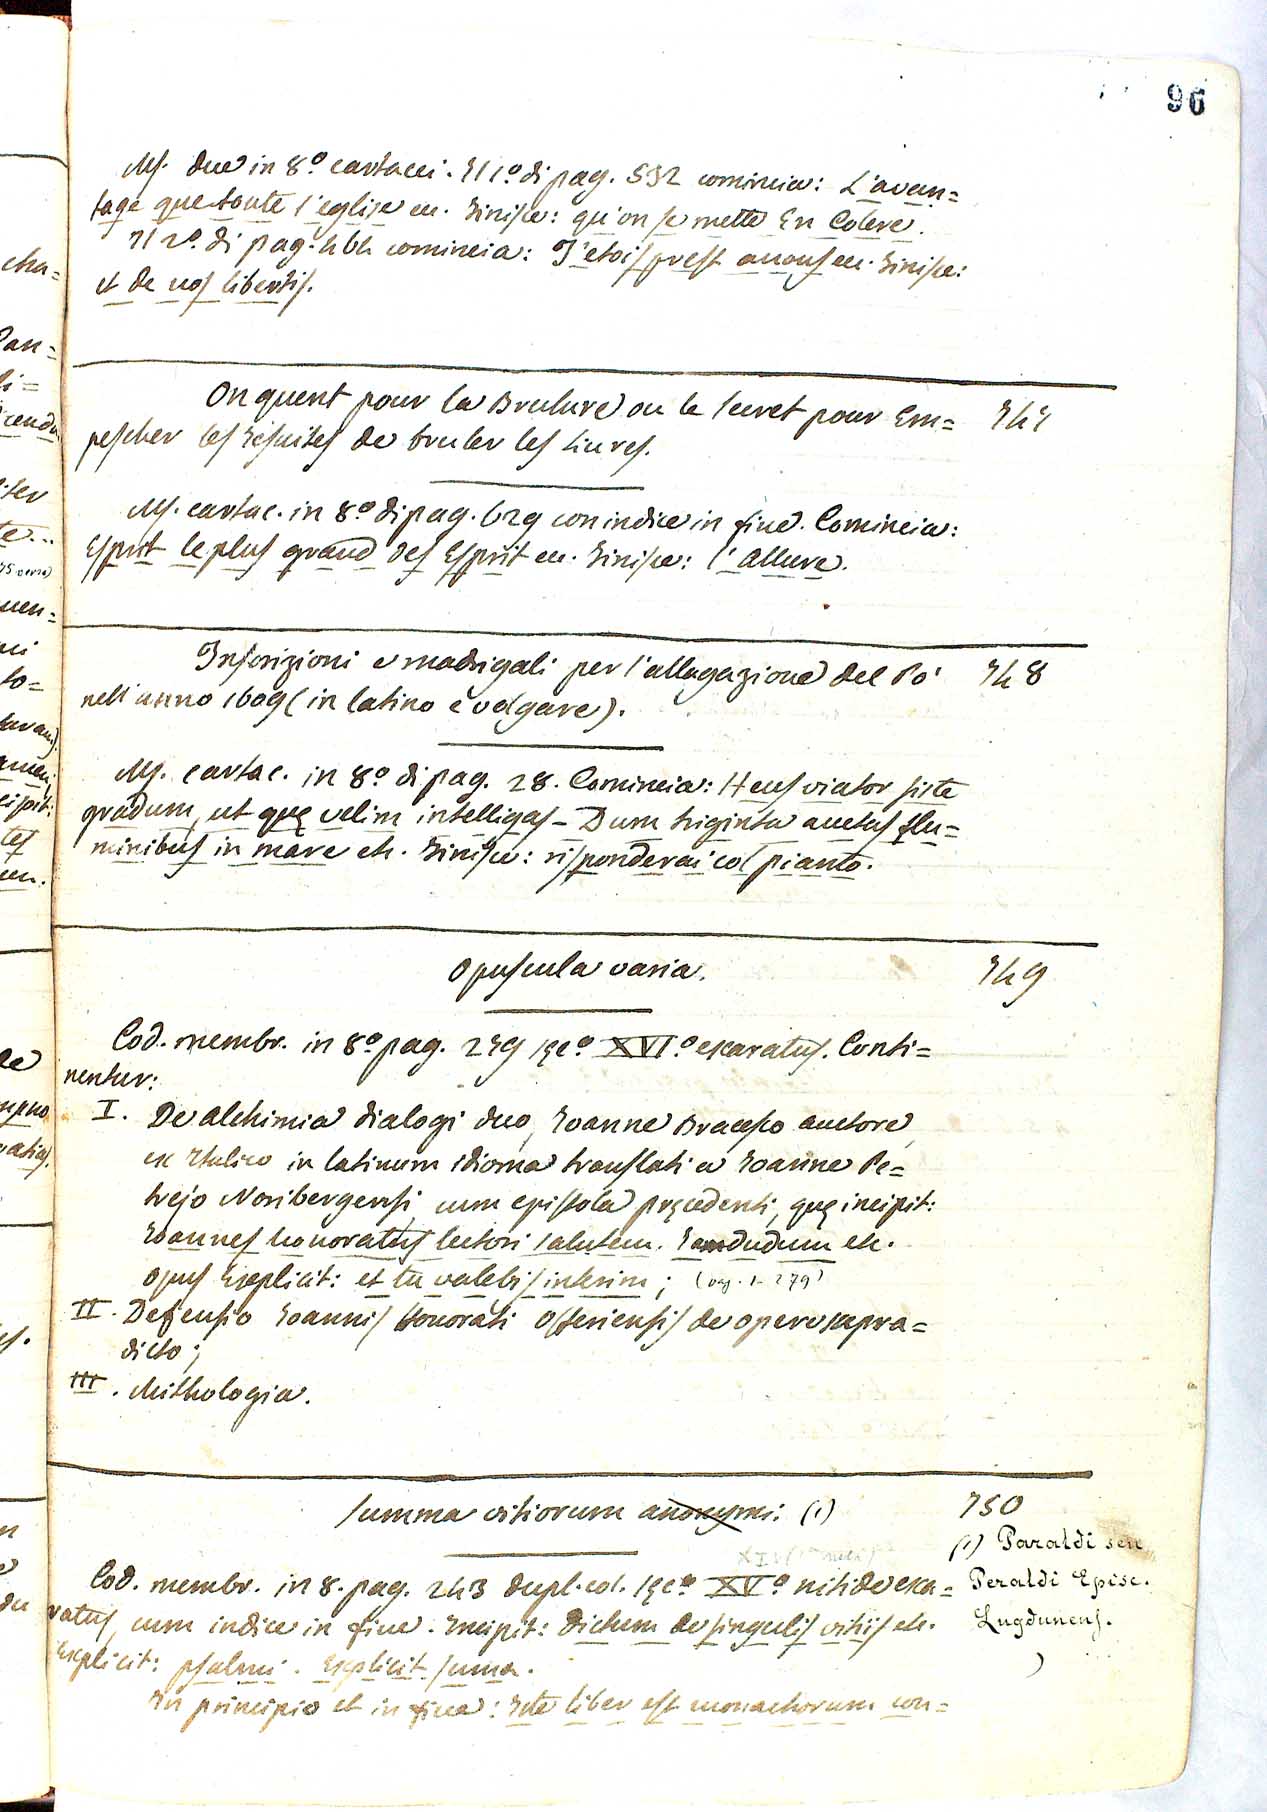 96
Ms. due in 8.º cartacei. Il 1.º di pag. 532 comincia: L'avan=
tage que toute l'eglise ec. Finisce: qu'on se mette En Colere.
Il 2.º di pag. 464 comincia: J'etois prest auous ec. Finisce:
et de nos libertis.
Onguent pour la Brulure ou le secret pour Em=
pescher les Jesuites de bruler les liures.
747
Ms. cartac. in 8.º di pag. 629 con indice in fine. Comincia:
Esprit le plus grand des Esprit ec. Finisce: l'allure.
Inscrizioni e madrigali per l'allagazione del Po
748
nell'anno 1609 (in latino e volgare).
Ms. cartac. in 8.º di pag. 28. Comincia: Heus viator siste
gradum, ut quę velim intelligas – Dum triginta auctus flu=
minibus in mare etc. Finisce: risponderai col pianto.
Opuscula varia.
749
Cod. membr. in 8.º pag. 279 sęc.º XVI.º exaratus. Conti=
nentur:
I. De Alchimia dialogi duo, Joanne Bracesco auctore,
ex Italico in latinum idioma translati a Joanne Pe=
trejo Noribergensi, cum epistola pręcedenti, quę incipit:
Joannes honoratus lectori salutem. Jamdudum etc.
Opus Explicit: et tu valebis interim; (pag. 1-279)
II. Defensio Joannis Honorati de opere supra=
dicto;
III. Mithologia.
Summa vitiorum anonymi: (1)
750
(1) Paraldi seu
Peraldi Episc.
Lugdunens.
Cod. membr. in 8. pag. 243 dupl. col. sęc.º XV.º nitide exa=
ratus, cum indice in fine. Incipit: Dictum de singulis vitiis etc.
Explicit: psalmi. Explicit summa.
In principio et in fine: Iste liber est monachorum con=